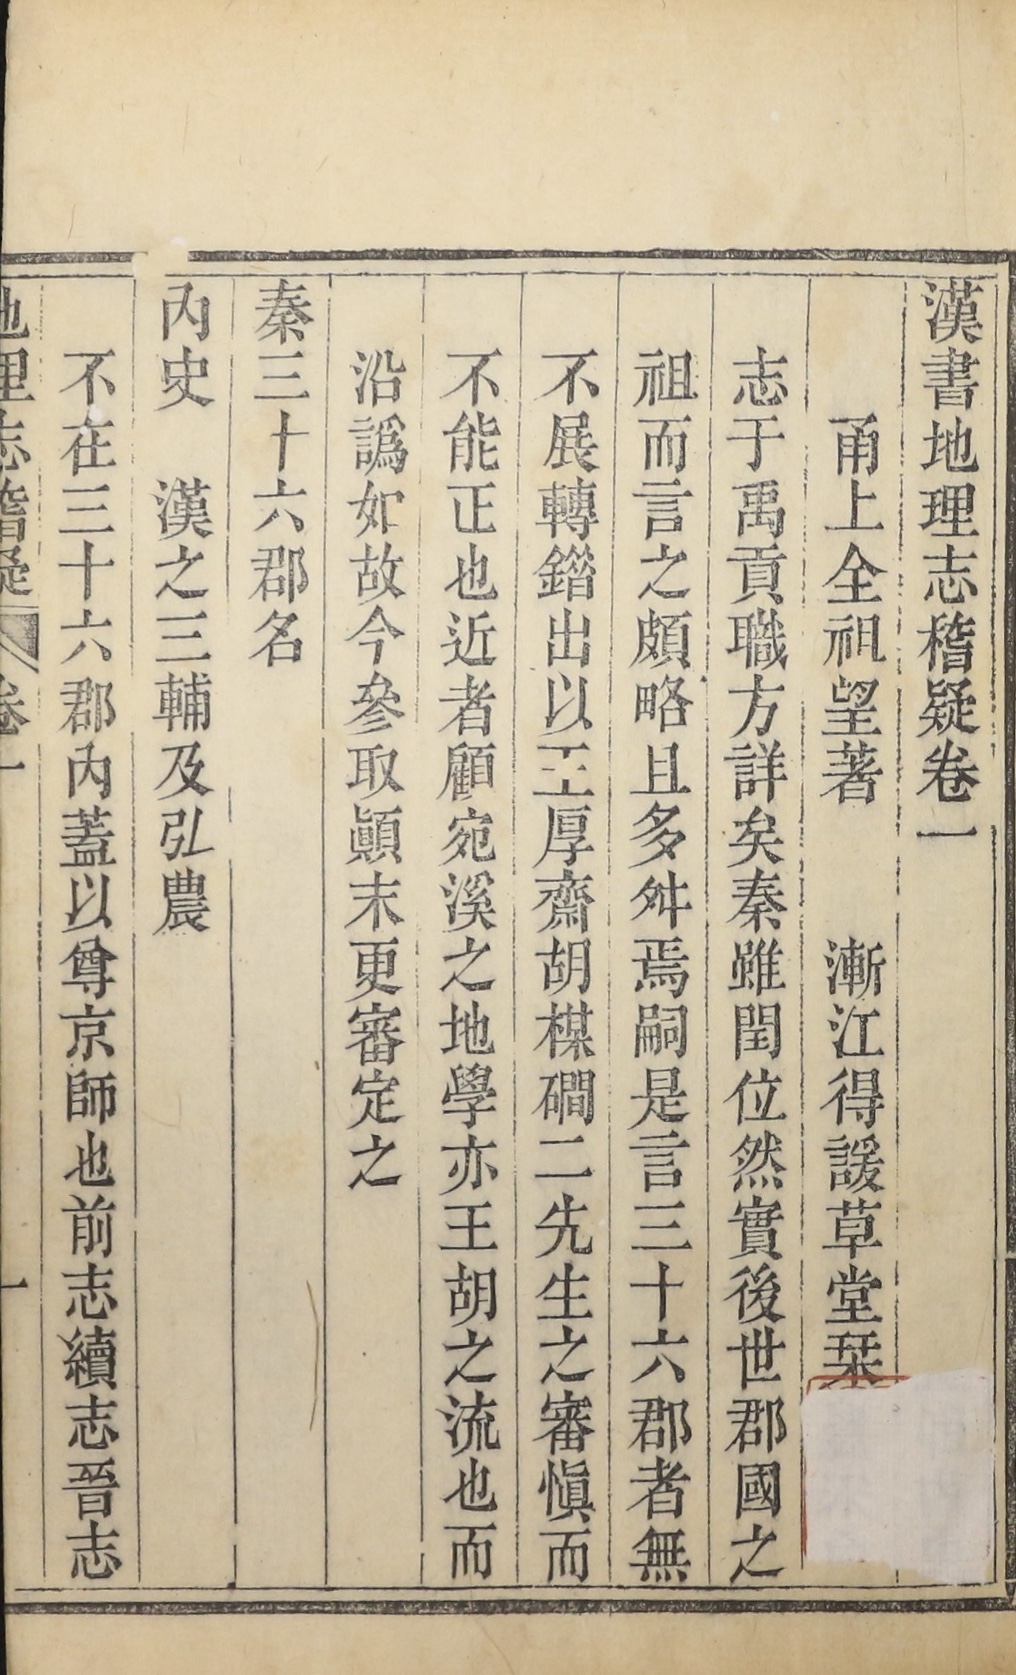 漢書地理志稽疑卷一
甬上全祖望著　漸江得諼草堂栞
志于禹貢職方詳矣秦雖閏位然實後世郡國之
祖而言之頗略且多舛焉嗣是言三十六郡者無
不展轉錯出以王厚齋胡楳磵二先生之審愼而
不能正也近者顧宛溪之地學亦王胡之流也而
沿譌如故今參取顚末更審定之
秦三十六郡名
內史　漢之三輔及弘農
不在三十六郡內蓋以尊京師也前志續志晉志
地理志稽疑　卷一　一